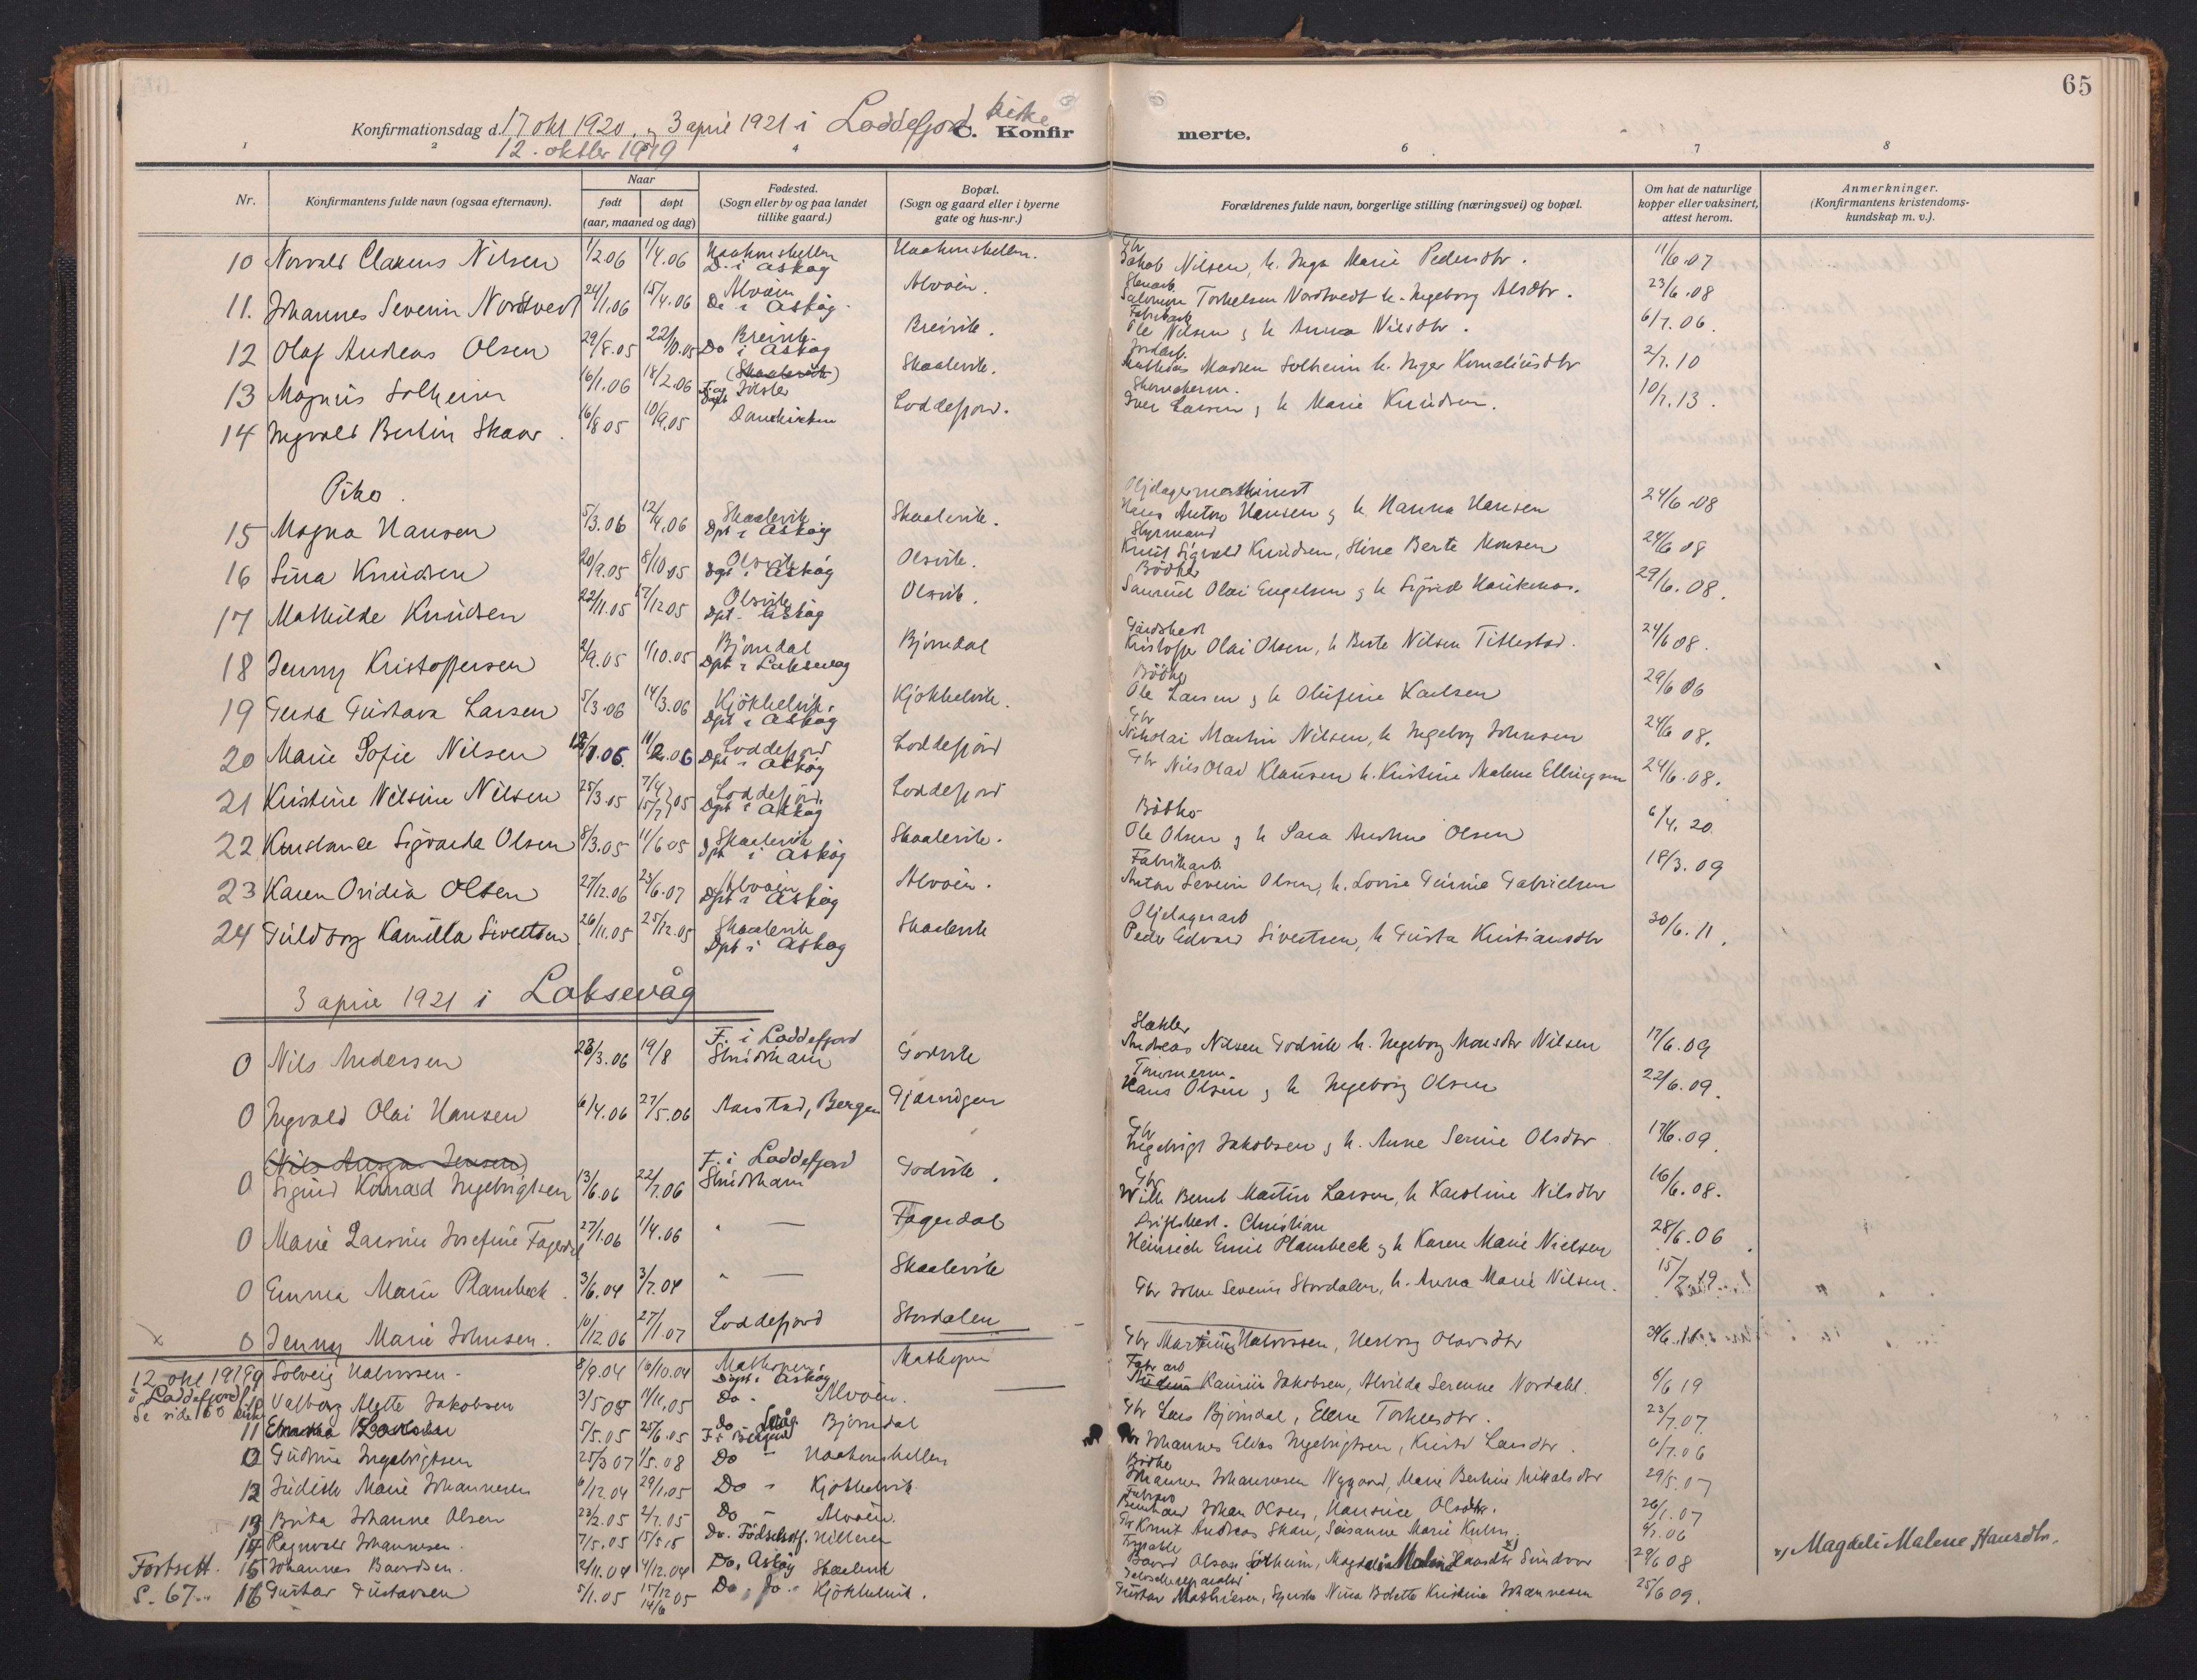 65
Konfirmationsdag d. 17 okt 1920. og 3 april 1921 i Loddefjord kirke
12. oktber 1919
C. Konfirmerte.
1 2 4 6 7 8
Nr. Konfirmantens fulde navn (ogsaa efternavn). Naar født døpt (aar, maaned og dag) Fødested. (Sogn eller by og paa landet tillike gaard.) Bopæl. (Sogn og gaard eller i byerne gate og hus-nr.) Forældrenes fulde navn, borgerlige stilling (næringsvei) og bopæl. Om hat de naturlige kopper eller vaksinert, attest herom. Anmerkninger. (Konfirmantens kristendoms-kundskap m. v.).
10 Norvald Nilsen 1/2.06 1/4.06 Haakonshellen D. i Askøy Haakonshellen. Gbr Jakob Nilsen, h. Inga Marie Pedersdtr. 11/6.07
11. Johannes Severin Nordtvedt 24/1.06 15/4.06 Alvøen Do i Askøy Alvøen. Salomon Torkelsen Nordtvedt h. Ingeborg Alsdtr. 23/6.08
12 Olaf Andreas Olsen 29/8.05 22/10.05 Breivik Do i Askøy Breivik. Fabrikarb Ole Nilsen og h Anna Nilsdtr. 6/7.06.
13 Magnus Solheim 16/1.06 18/2.06 (Skaalevik) F. og døpt Jølster Skaalevik. Jordarb. Mathias Madsen Solheim h. Inger Korneliusdtr 2/7.10
14 Ingvald Bertin Skaar. 16/8 05 10/9.05 Domkirken Loddefjord. Skomakerm. Iver Larsen og h Marie Knudsen. 10/7.13.
Piko.
15 Magna Hansen 5/3.06 12/4.06 Skaalevik Dpt i Askøy Skaalevik. Oljelagermaskinist Hans Anton Hansen og h. Hanna Hansen 24/6.08
16 Sina Knudsen 20/9.05 8/10 05 Olsvik Dpt i Askøy Olsvik. Styrmand Knut Sigvald Knudsen, Stine Berte Monsen 24/6 08
17 Mathilde Knudsen 22/11.05 17/12 05 Olsvik Dpt. Askøy Olsvik. Bødker Samuel Olai Engelsen og h Sigrid Haukenas. 29/6.08.
18 Jenny Kristoffersen 2/9.05 1/10.05 Bjørndal Dpt i Laksevag Bjørndal Gaardsbest Kristoffer Olai Olsen, h Berte Nilsen Titlestad. 24/6 08.
19 Gerda Gustava Larsen 5/3.06 14/3.06 Kjøkkelvik. Dpt i Askøy Kjøkkelvik. Bødker Ole Larsen og h Olufine Karlsen 29/6 06
20 Marie Sofie Nilsen 11/2.06 Loddefjord Dpt i Askøy Loddefjord Gbr Nikolai Martin Nilsen, h Ingeborg Johnsen 24/6 08.
21 Kristine Nilsine Nilsen 25/3.05 Loddefjord. Dpt i Askøy Loddefjord Gbr Nils Olad Klausen h. Kristine Malene Ellingsen 24/6.08.
22 Konstance Sigvarda Olsen 8/3.05 11/6 05 Skaalevik Dpt i Askøy Skaalevik. Ole Olsen og h Sara Olsen 6/4.20.
23 Karen Ovidia Olsen 27/12.06 23/6.07 Alvøen Dpt i Askøy Alvøen. Fabrikarb. Anton Severin Olsen, h. Lovise Gabrielsen 18/3.09
24 Guldborg Kamilla Sivertsen 26/11.05 25/12.05 Skaalevik Dpt i Askøy Skaalevik Oljelagerarb Peder Edvard Sivertsen, h Gusta Kristiansdtr 30/6.11.
3 april 1921 i Laksevåg
0 Nils Andersen 28/3.06 19/8 F. i Loddefjord Strudshavn Godvik Andreas Nilsen Godvik h. Ingeborg Monsdtr Nilsen 17/6.09
0 Ingvald Olai Hansen 6/4.06 27/5.06 Aarstad, Bergen Gjærnigen Tømmerm. Hans Olsen og h Ingeborg Olsen 22/6.09.
(Nils Jensen)
0 Sigurd Konrad Ingebrigtsen 13/6.06 22/7.06 F. i Loddefjord Strudshavn Godvik. Gbr Ingebrigt Jakobsen og h. Anne Serine Olsdtr 17/6.09.
0 Marie Larsine Josefine Fagerdal 27/1.06 1/4.06 " — Fagerdal Gbr Bernt Martin Larsen, h Karoline Nilsdtr 16/6.08.
0 Emma Marie Plambeck. 3/6.04 3/7.04 " — Skaalevik Driftsbest. Christian Heinrich Emil Plambeck og h Karen Marie Nielsen 28/6.06
x 0 Jenny Marie Johnsen. 10/12.06 27/1.07 Loddefjord Stordalen Gbr John Severin Stordalen, h. Anna Marie Nilsen. 15/7.19
12 okt 1919 i Loddefjord kirke Se side 60
9 Solveig Halvorsen. 8/9.04 16/10.04 Mathopen. Døpt i Askøy Mathopen Gbr Martinus Halvorssen, Herborg Olavsdtr
10 Valborg Alette Jakobsen 3/5 05 11/11.05 Do - Alvøen. Fabr arb Jakobsen, Alvilda Serenne Nordahl. 6/6 19
11 5/5.05 25/6.05 do F. i Bergen Bjørndal Gbr Lars Bjørndal, Elene Torkelsdtr. 23/7.07.
12 Gudrun Ingebrigtsen 25/3 07 1/5.08 Do " Haakonshellen Gbr Johannes Elias Ingebrigtsen, Kristi Larsdtr. 6/7.06
12 Judith Marie Johannesen 6/12 04 29/1.05 Do " Kjøkkelvik. Bødker Johannes Johannesen Nygaard, Marie Bertine Mikalsdtr 29/5.07
13 Brita Johanne Olsen 23/2.05 2/7.05 Do - Alvøen. Fabrarb Bernhard Johan Olsen, Hansine Olsdtr. 26/1.07
14 Ragnvald Johannesen. 7/5.05 Do. Fødselsatt. Hilleren Gbr Knut Andreas Skau, Susanne Marie 4/7.06
15 Johannes Baardsen. 2/11.04 4/12.04 Do, Askøy Skaalevik Baard Olson Solheim, Malene Hansdtr x) 29/6 08 x) Magdeli Malene Hansdtr.
Fortsett. S. 67. 16 Gustav Gustavsen 5/1.05 Do, Do. Kjøkkelvik. Gustav Mathiesen, Nina Bolette Kristine Johannesen 25/6 09.